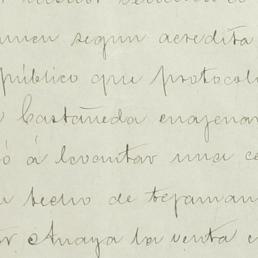 umen segun acredita
público que protocol
Castañeda enajenar
ó á levantar una ca
techo de tejaman
Anaya la venta e